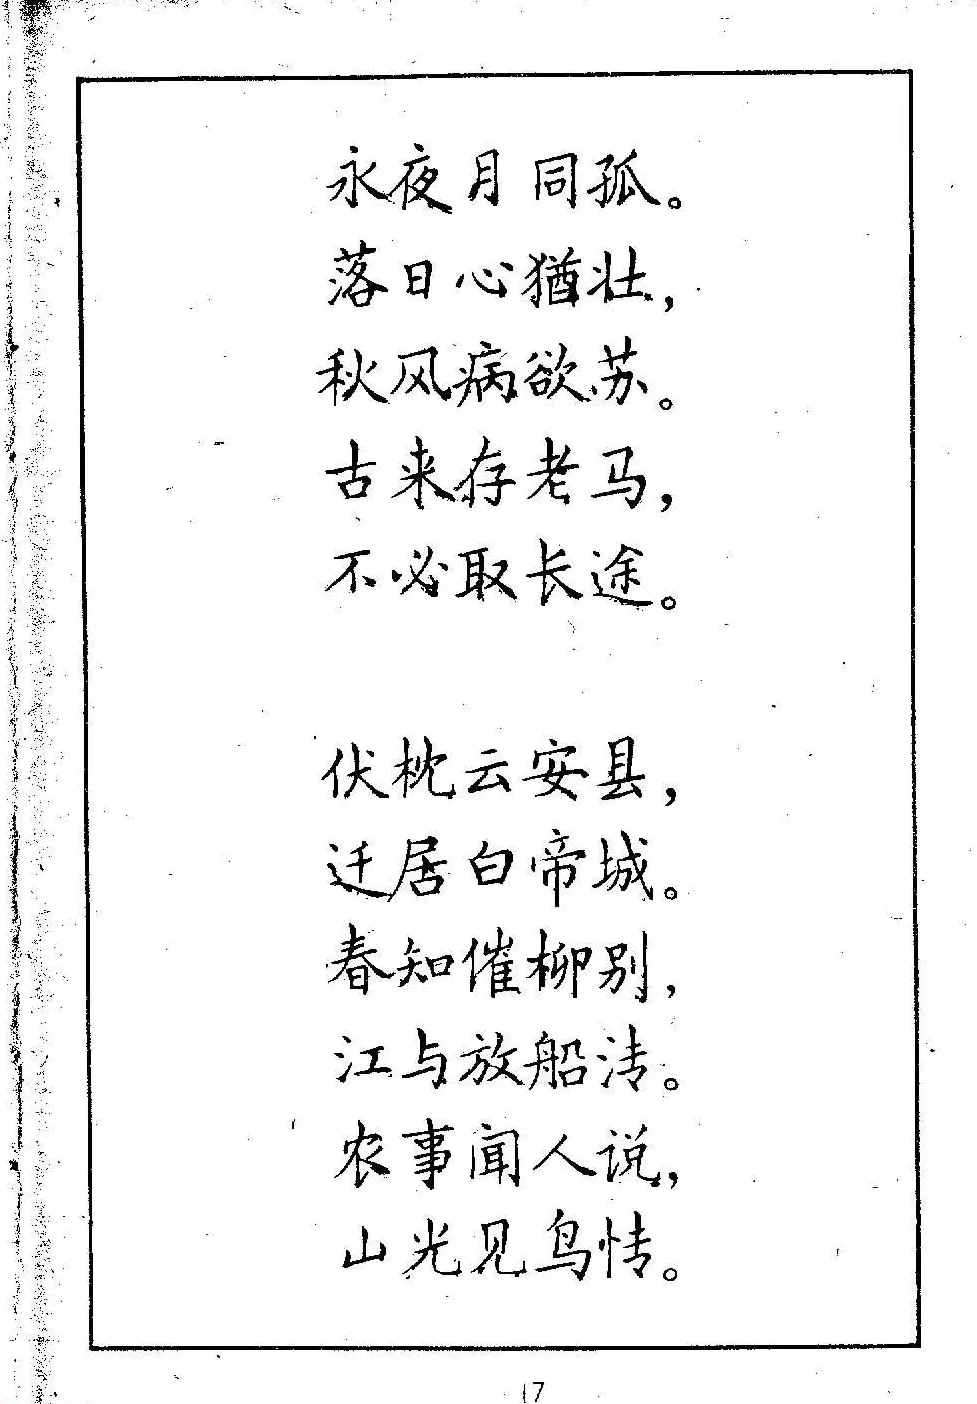 永夜月同孤。
落日心猶壮，
秋风病欲苏。
古来存老马，
不必取长途。
伏枕云安县，
迁居白帝城。
春知催柳别，
江与放船清。
农事闻人说，
山光见鸟情。
17